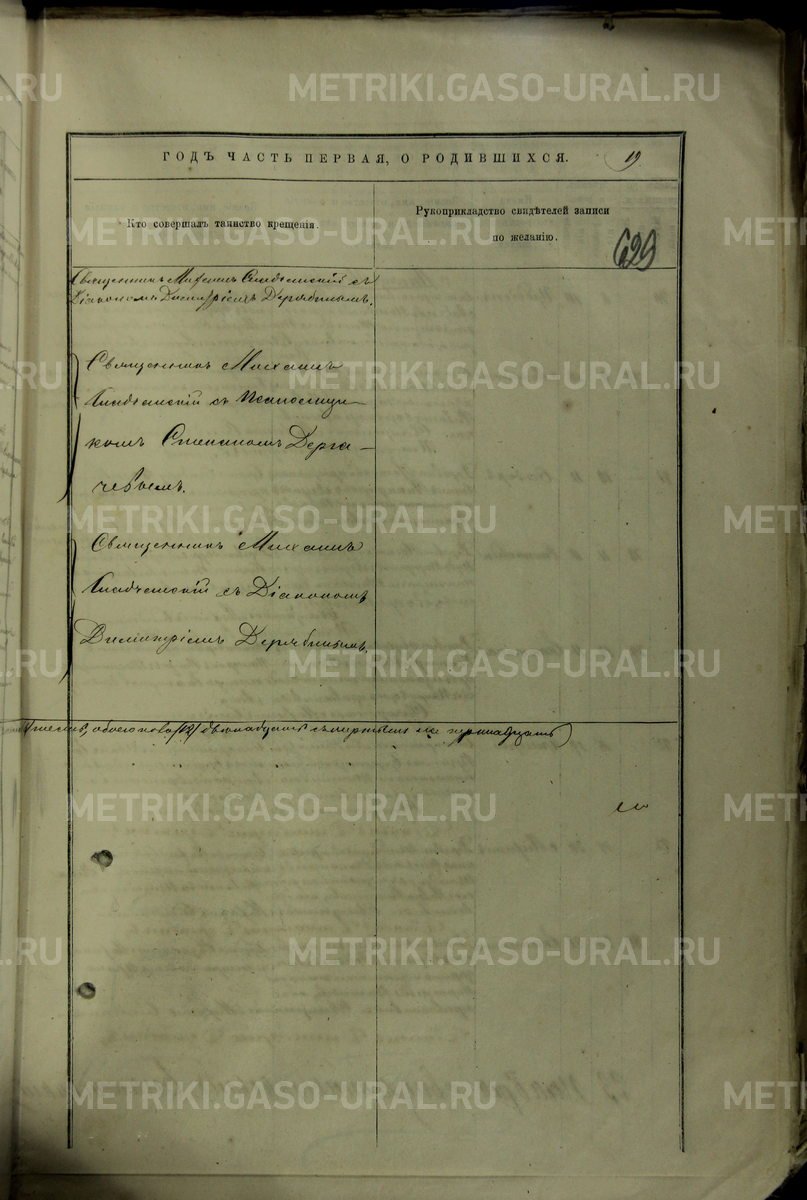 METRIKI.GASO-URAL.RU
ГОДЪ ЧАСТЬ ПЕРВАЯ, О РОДИВШИХСЯ. 19.
Кто совершалъ таинство крещенія.
Рукоприкладство свидѣтелей записи
по желанію.
629
Священникъ Михаилъ съ
Діакономъ Димитріемъ Дерябинымъ.
Священникъ Михаилъ
съ Псаломщи-
комъ Степаномъ Дерга-
чевымъ.
Священникъ Михаилъ
съ Діакономъ
Димитріемъ Дерябинымъ.
обоего пола /12/ двѣнадцать